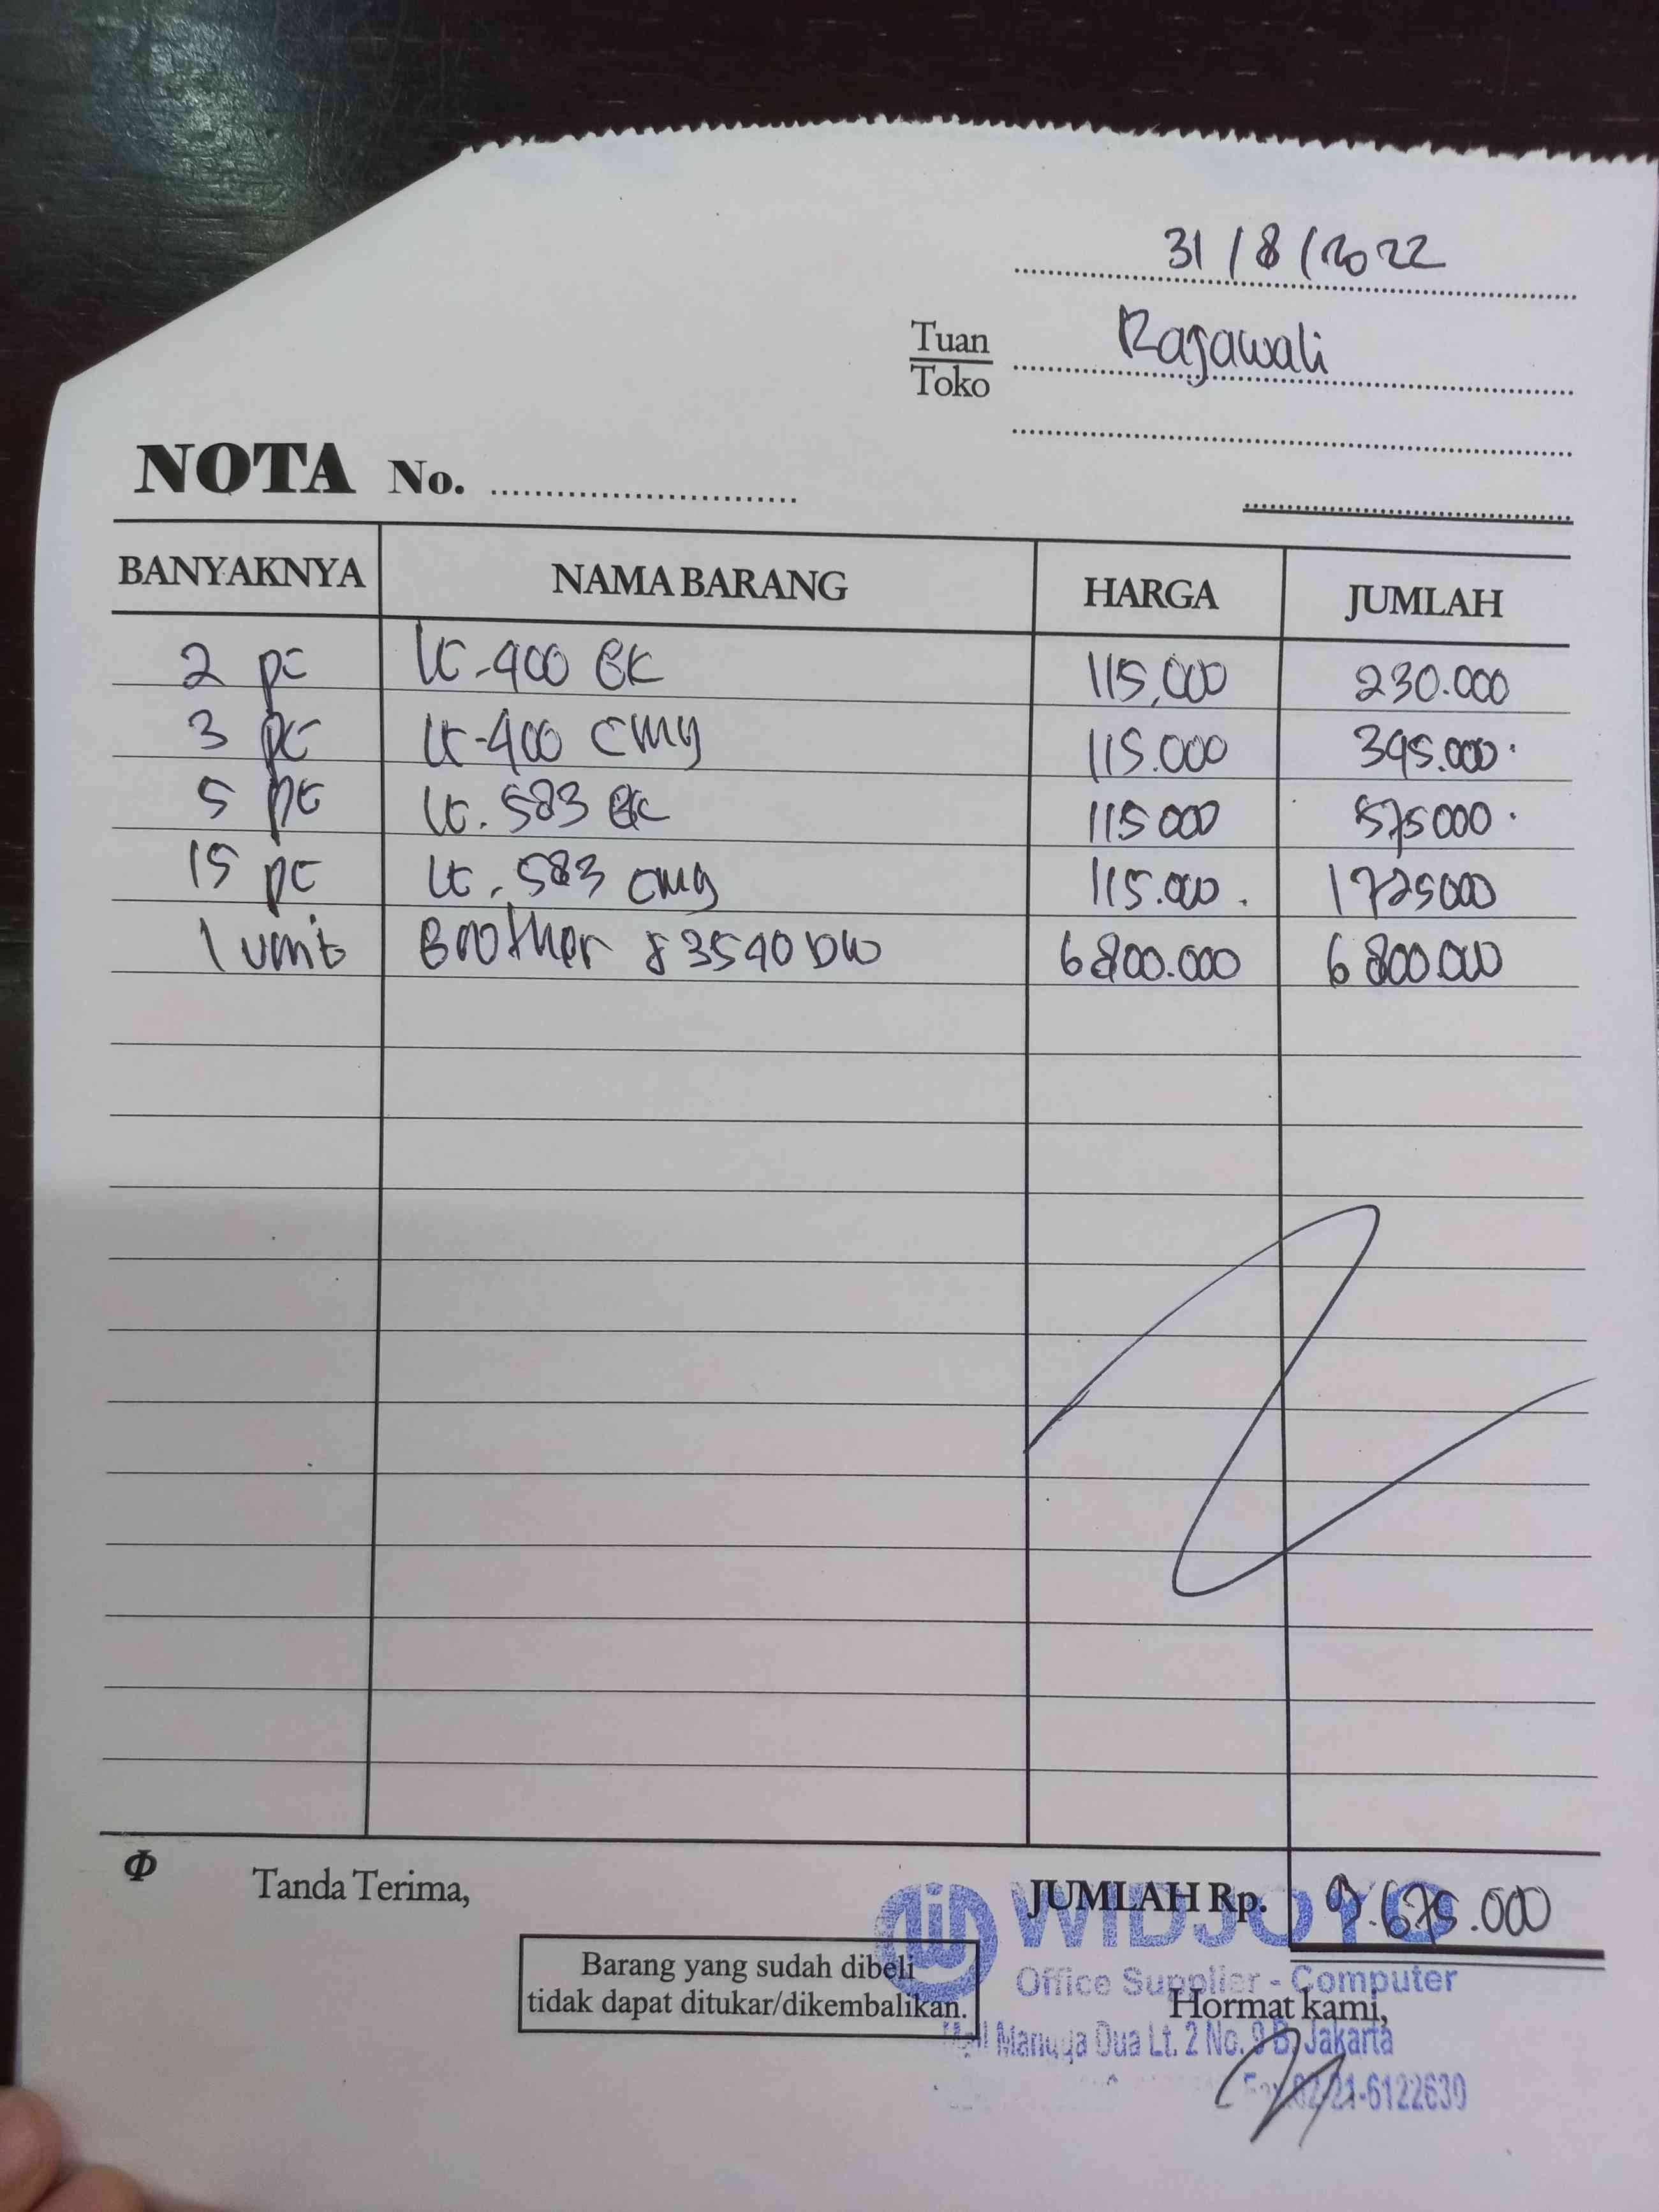 31/8/2022
Tuan
Toko
Rajawali
NOTA No.
BANYAKNYA NAMA BARANG HARGA JUMLAH
2 pc LC-400 BK 115,000 230.000
3 pc LC-400 CMY 115.000 345.000
5 pc LC. 583 BK 115 000 575000
15 pc LC. 583 CMY 115.000. 1725000
1 unit Brother J 3540 DW 6800.000 6 800.000
Φ
Tanda Terima,
JUMLAH Rp. 9.675.000
WIDJOYO
Barang yang sudah dibeli
tidak dapat ditukar/dikembalikan.
Office Supplier - Computer
Hormat kami,
Mall Mangga Dua Lt. 2 No. 9 B, Jakarta
Fax.62-21-6122630